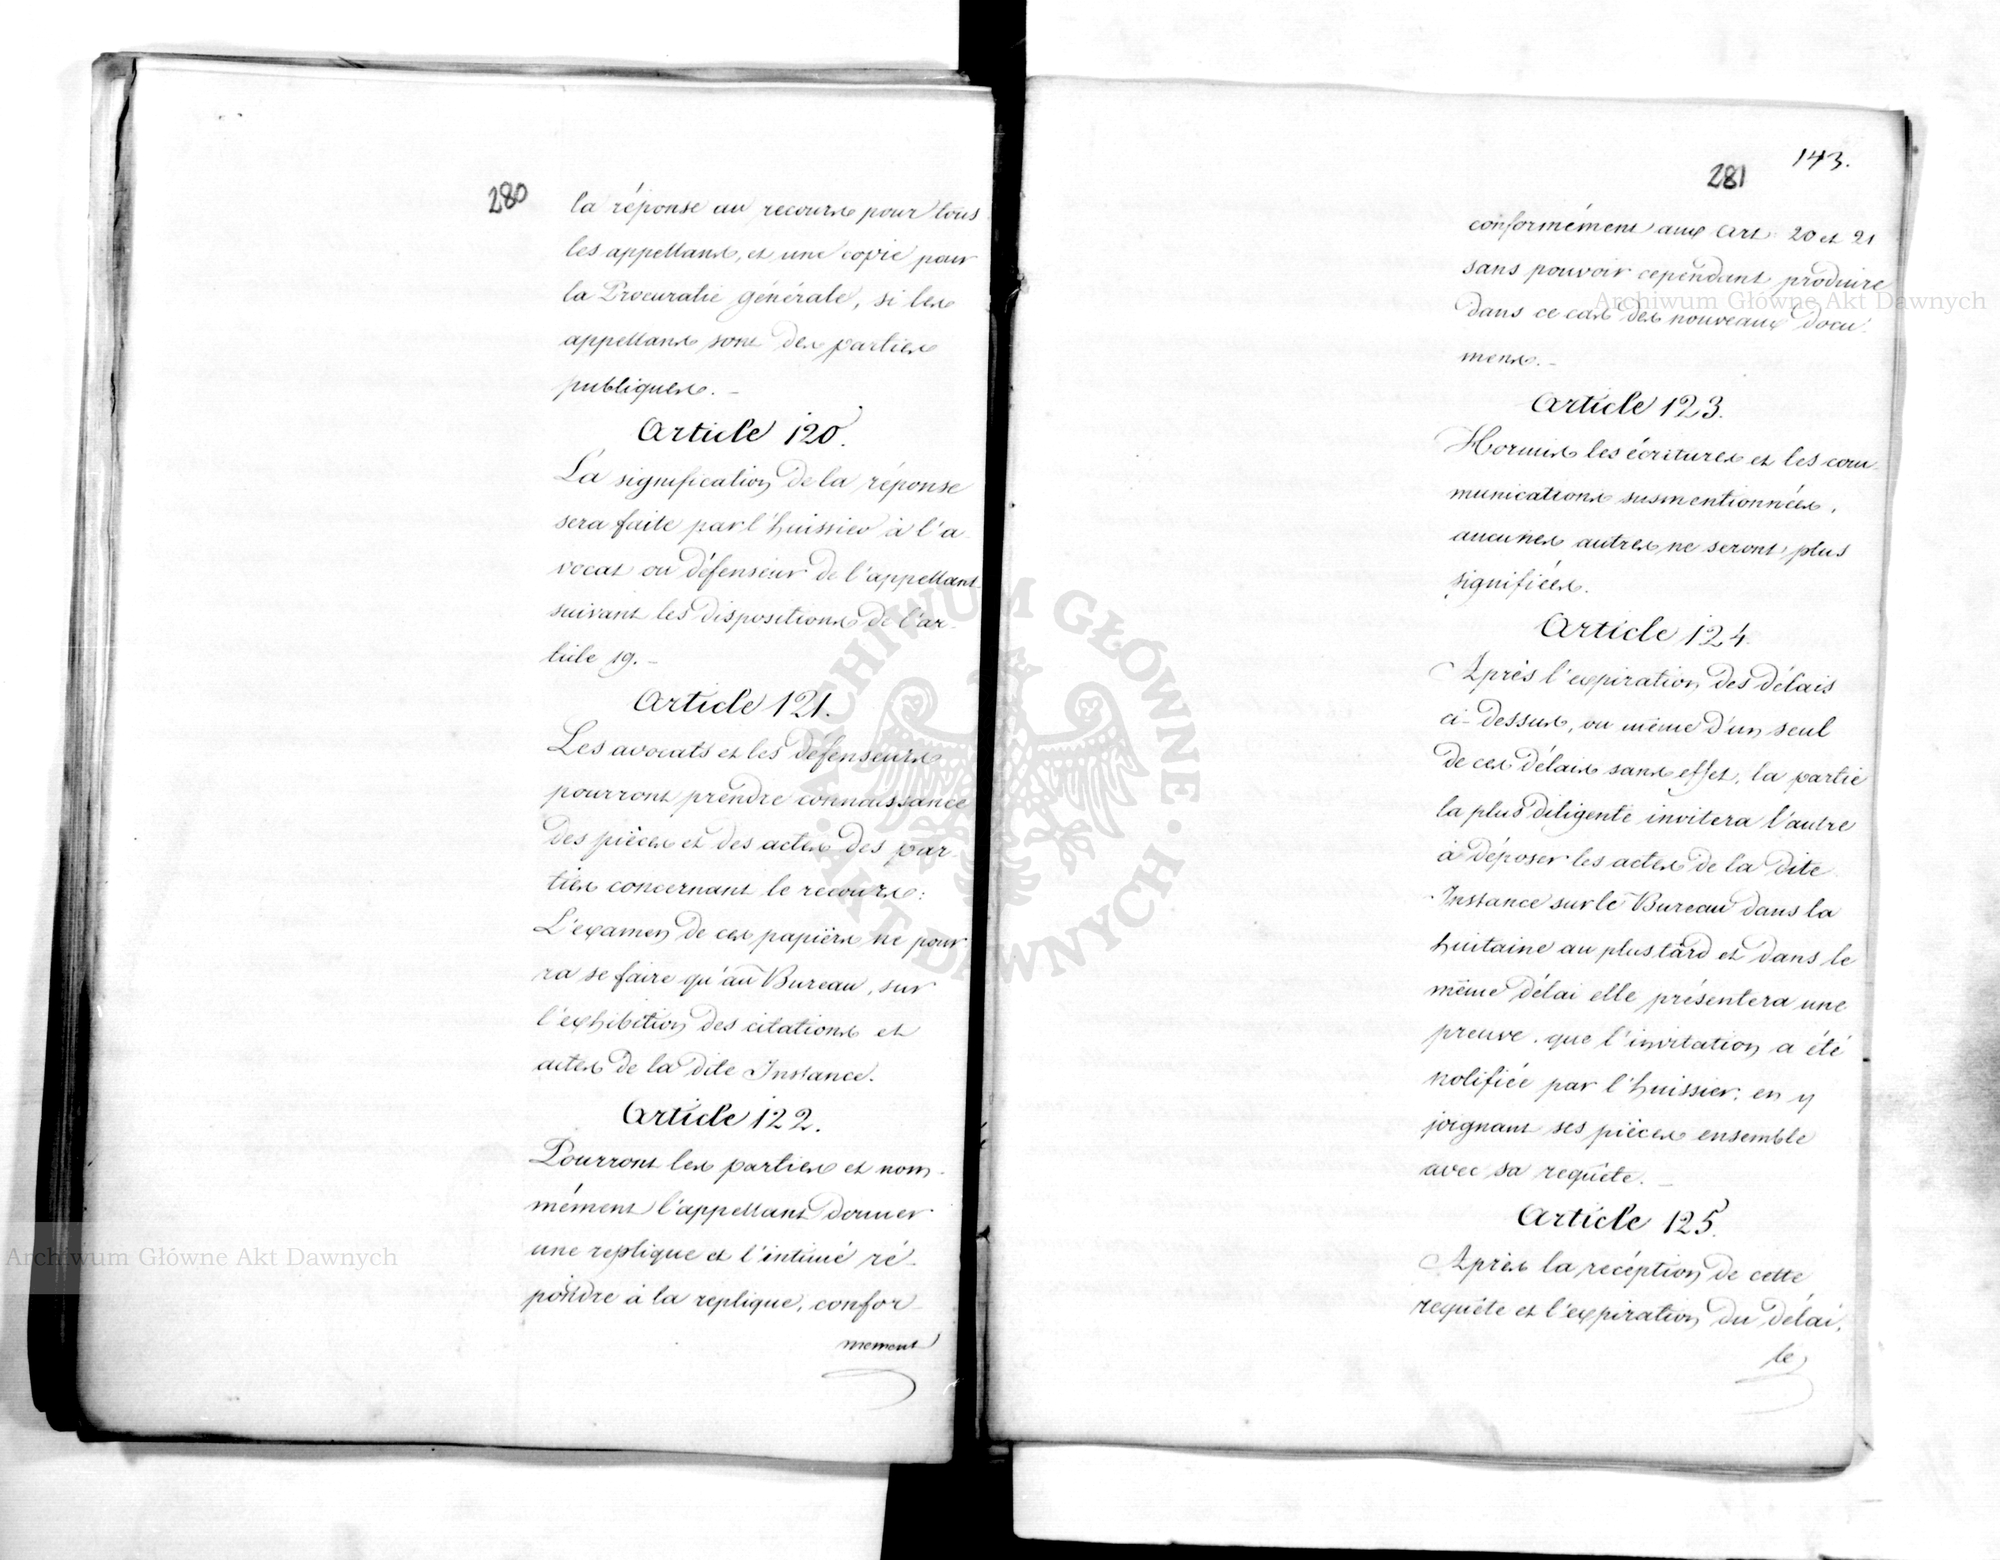 280
la réponse au recours pour tous
les appellans, et une copie pour
la Procuratie générale, si les
appellans sont des parties
publiques. _
Article 120.
La signification de la réponse
sera faite par l'huissier à l'a-
vocat ou défenseur de l'appellant
suivant les dispositions de l'ar-
ticle 19. _
Article 121.
Les avocats et les défenseurs
pourront prendre connaissance
des pièces et des actes des par-
ties concernant le recours:
L'examen de ces papièrs ne pour-
ra se faire qu'au Bureau, sur
l'exhibition des citations et
actes de la dite Instance.
Article 122.
Pourront les parties et nom-
mément l'appellant donner
une replique et l'intimé ré-
pondre à la replique, confor-
mement
143.
281
conformément aux Art. 20 et 21
sans pouvoir cependant produire
dans ce cas des nouveaux docu-
mens. _
Article 123.
Hormis les écritures et les com-
munications susmentionnées,
aucunes autres ne seront plus
signifiées.
Article 124.
Après l'expiration des délais
ci-dessus, ou même d'un seul
de ces délais sans effet, la partie
la plus diligente invitera l'autre
à déposer les actes de la dite
Instance sur le Bureau dans la
huitaine au plus tard et dans le
même délai elle présentera une
preuve, que l'invitation a été
notifiée par l'huissier, en y
joignant ses pièces ensemble
avec sa requête. _
Article 125.
Après la recéption de cette
requête et l'expiration du délai,
le
Archiwum Główne Akt Dawnych
Archiwum Główne Akt Dawnych
ARCHIWUM GŁÓWNE · AKT DAWNYCH ·